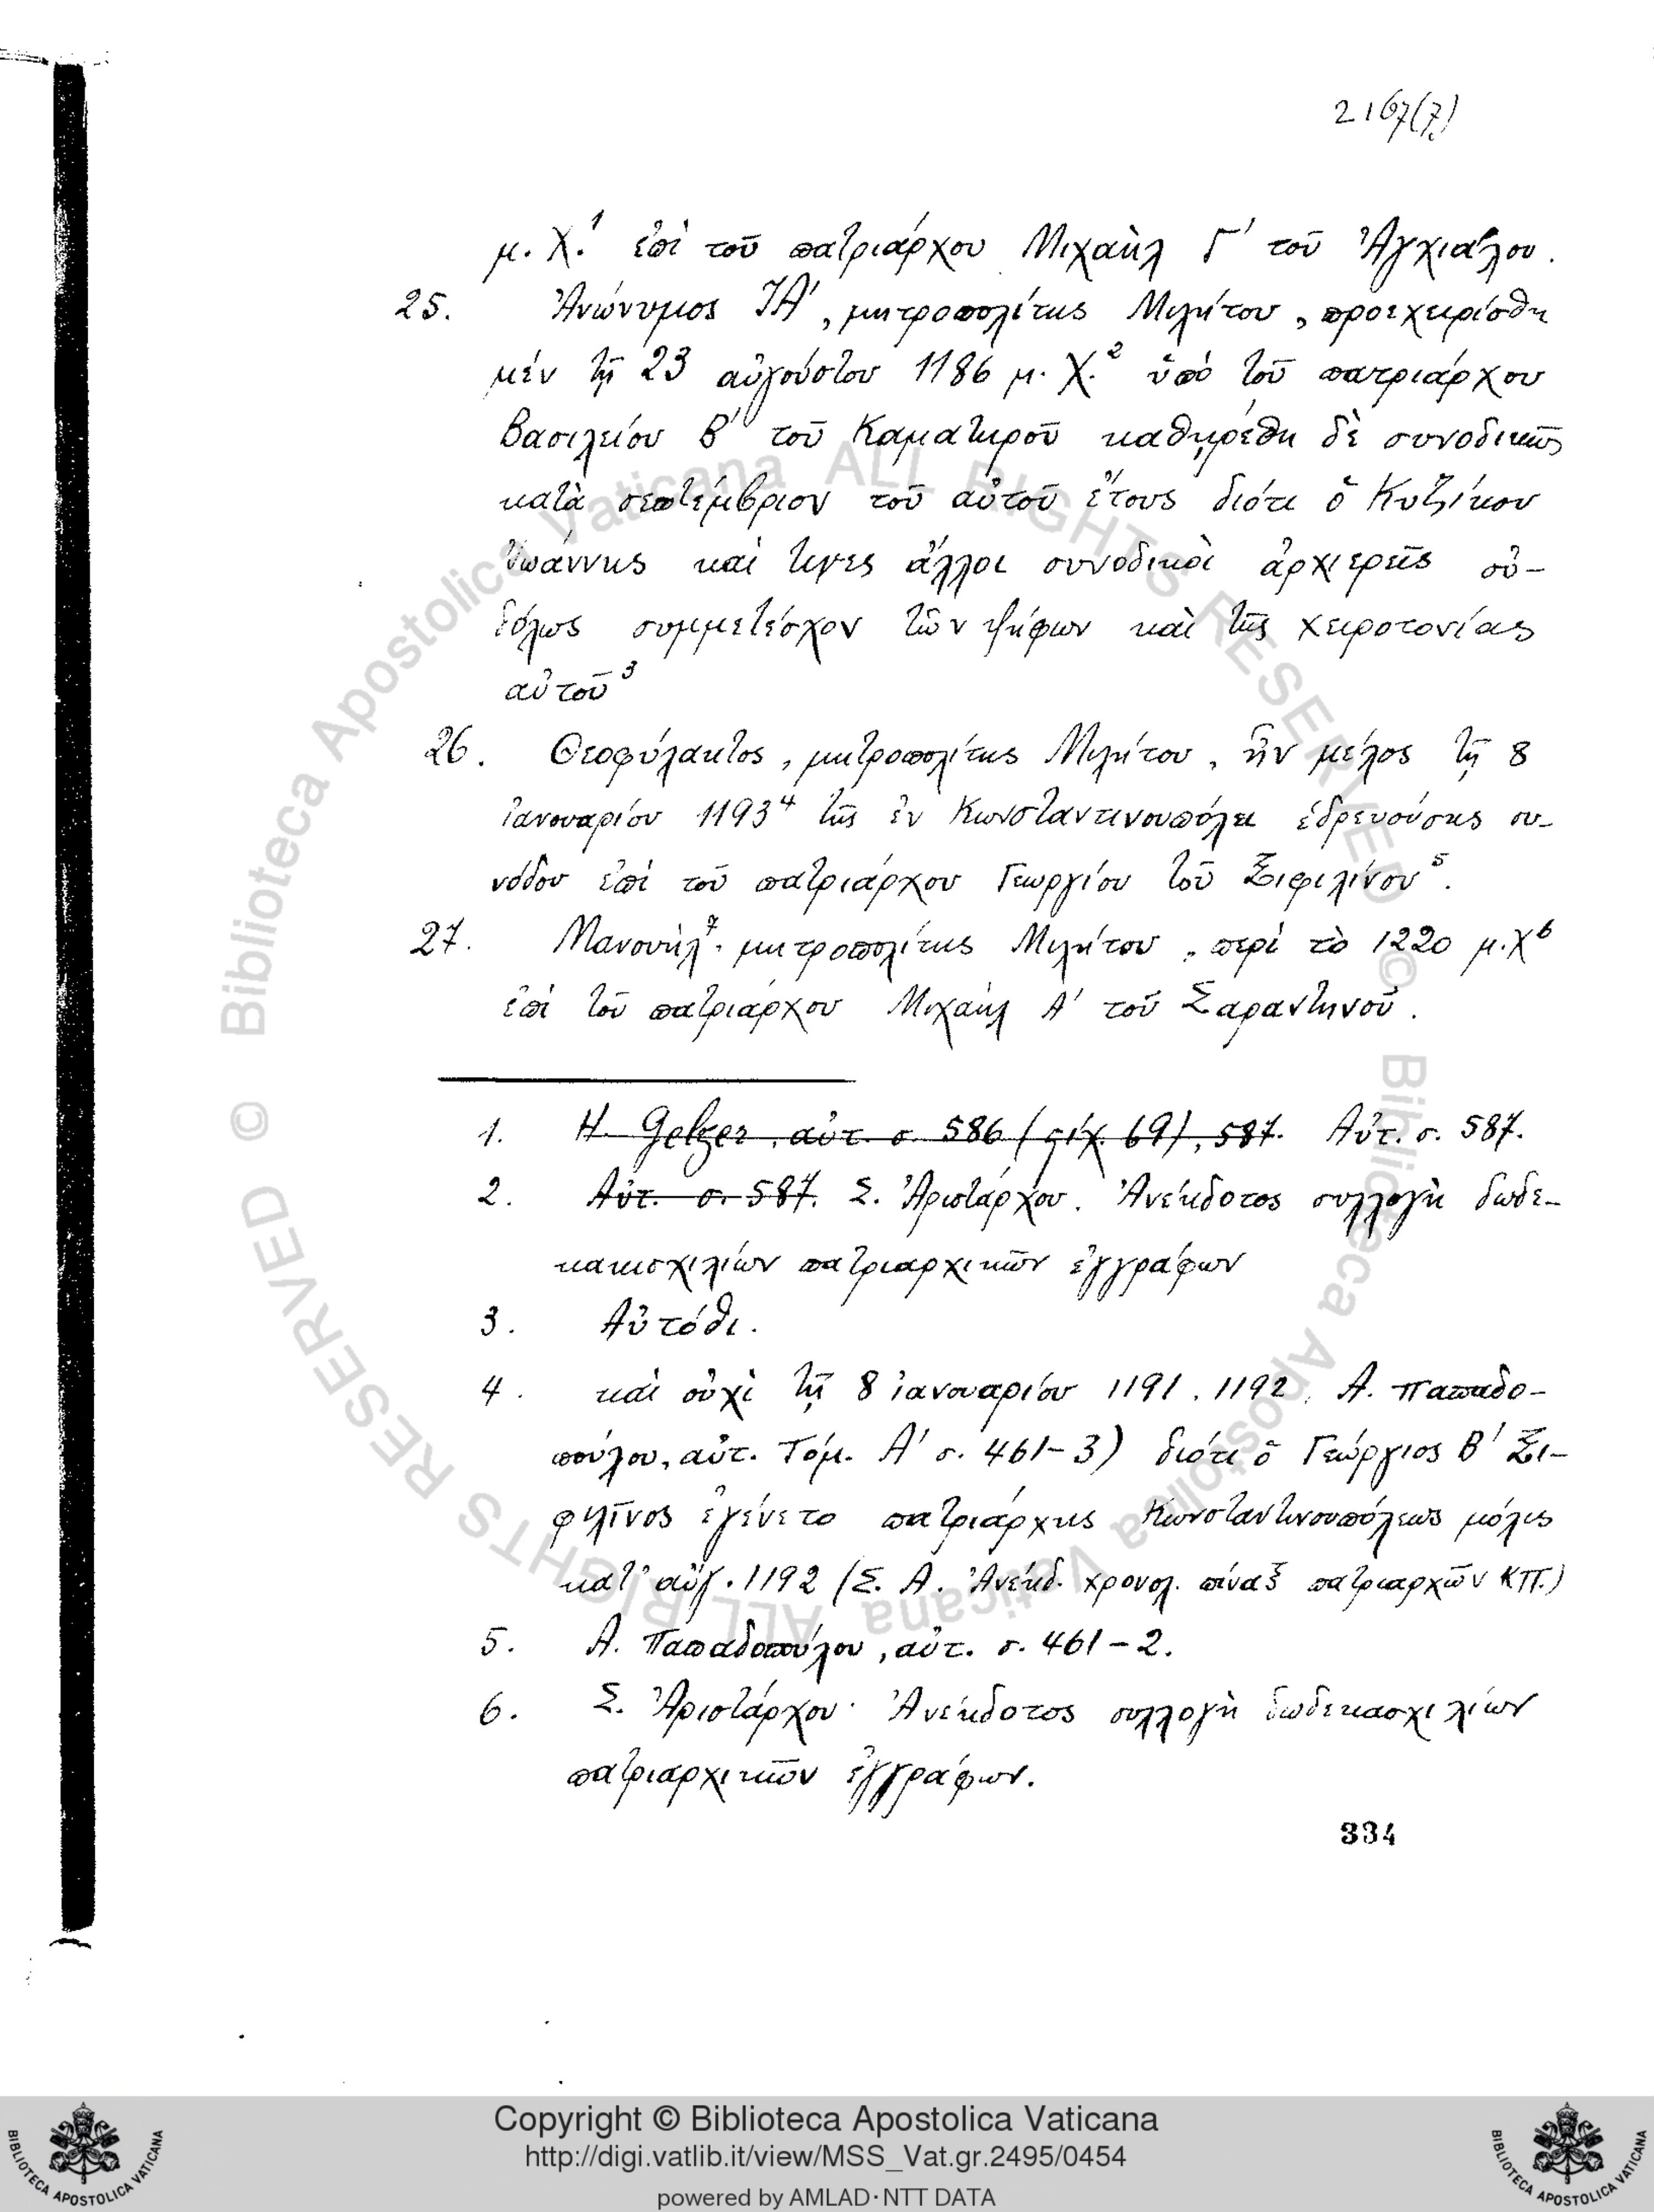 2167(7)
μ. Χ.¹ ἐπὶ τοῦ πατριάρχου Μιχαὴλ Γ΄ τοῦ Ἀγχιάλου.
25. Ἀνώνυμος ΙΑ΄, μητροπολίτης Μιλήτου, προεχειρίσθη
μὲν τῇ 23 αὐγούστου 1186 μ. Χ.² ὑπὸ τοῦ πατριάρχου
Βασιλείου Β΄ τοῦ Καματηροῦ καθῃρέθη δὲ συνοδικῶς
κατὰ σεπτέμβριον τοῦ αὐτοῦ ἔτους διότι ὁ Κυζίκου
Ἰωάννης καὶ τινες ἄλλοι συνοδικοὶ ἀρχιερεῖς οὐ-
δόλως συμμετέσχον τῶν ψήφων καὶ τῆς χειροτονίας
αὐτοῦ³
26. Θεοφύλακτος, μητροπολίτης Μιλήτου, ἦν μέλος τῇ 8
ἰανουαρίου 1193⁴ τῆς ἐν Κωνσταντινουπόλει ἑδρευούσης συ-
νόδου ἐπὶ τοῦ πατριάρχου Γεωργίου τοῦ Ξιφιλίνου⁵.
27. Μανουὴλ⁷· μητροπολίτης Μιλήτου, περὶ τὸ 1220 μ.Χ⁶
ἐπὶ τοῦ πατριάρχου Μιχαὴλ Α΄ τοῦ Σαραντηνοῦ.
1. H. Gelzer, αὐτ. σ. 586 (στίχ. 69), 587. Αὐτ. σ. 587.
2. Αὐτ. σ. 587. Σ. Ἀριστάρχου. Ἀνέκδοτος συλλογὴ δωδε-
κακισχιλίων πατριαρχικῶν ἐγγράφων
3. Αὐτόθι.
4. καὶ οὐχὶ τῇ 8 ἰανουαρίου 1191. 1192, Α. Παπαδο-
πούλου, αὐτ. Τόμ. Α΄ σ. 461-3) διότι ὁ Γεώργιος Β΄ Ξι-
φιλῖνος ἐγένετο πατριάρχης Κωνσταντινουπόλεως μόλις
κατ' αὔγ. 1192 (Σ. Α. Ἀνέκδ. χρονολ. πίναξ πατριαρχῶν ΚΠ.)
5. Α. Παπαδοπούλου, αὐτ. σ. 461-2.
6. Σ. Ἀριστάρχου· Ἀνέκδοτος συλλογὴ δωδεκασχιλίων
πατριαρχικῶν ἐγγράφων.
334
© Biblioteca Apostolica Vaticana ALL RIGHTS RESERVED
© Biblioteca Apostolica Vaticana ALL RIGHTS RESERVED
Copyright © Biblioteca Apostolica Vaticana
http://digi.vatlib.it/view/MSS_Vat.gr.2495/0454
powered by AMLAD·NTT DATA
BIBLIOTECA APOSTOLICA VATICANA
BIBLIOTECA APOSTOLICA VATICANA